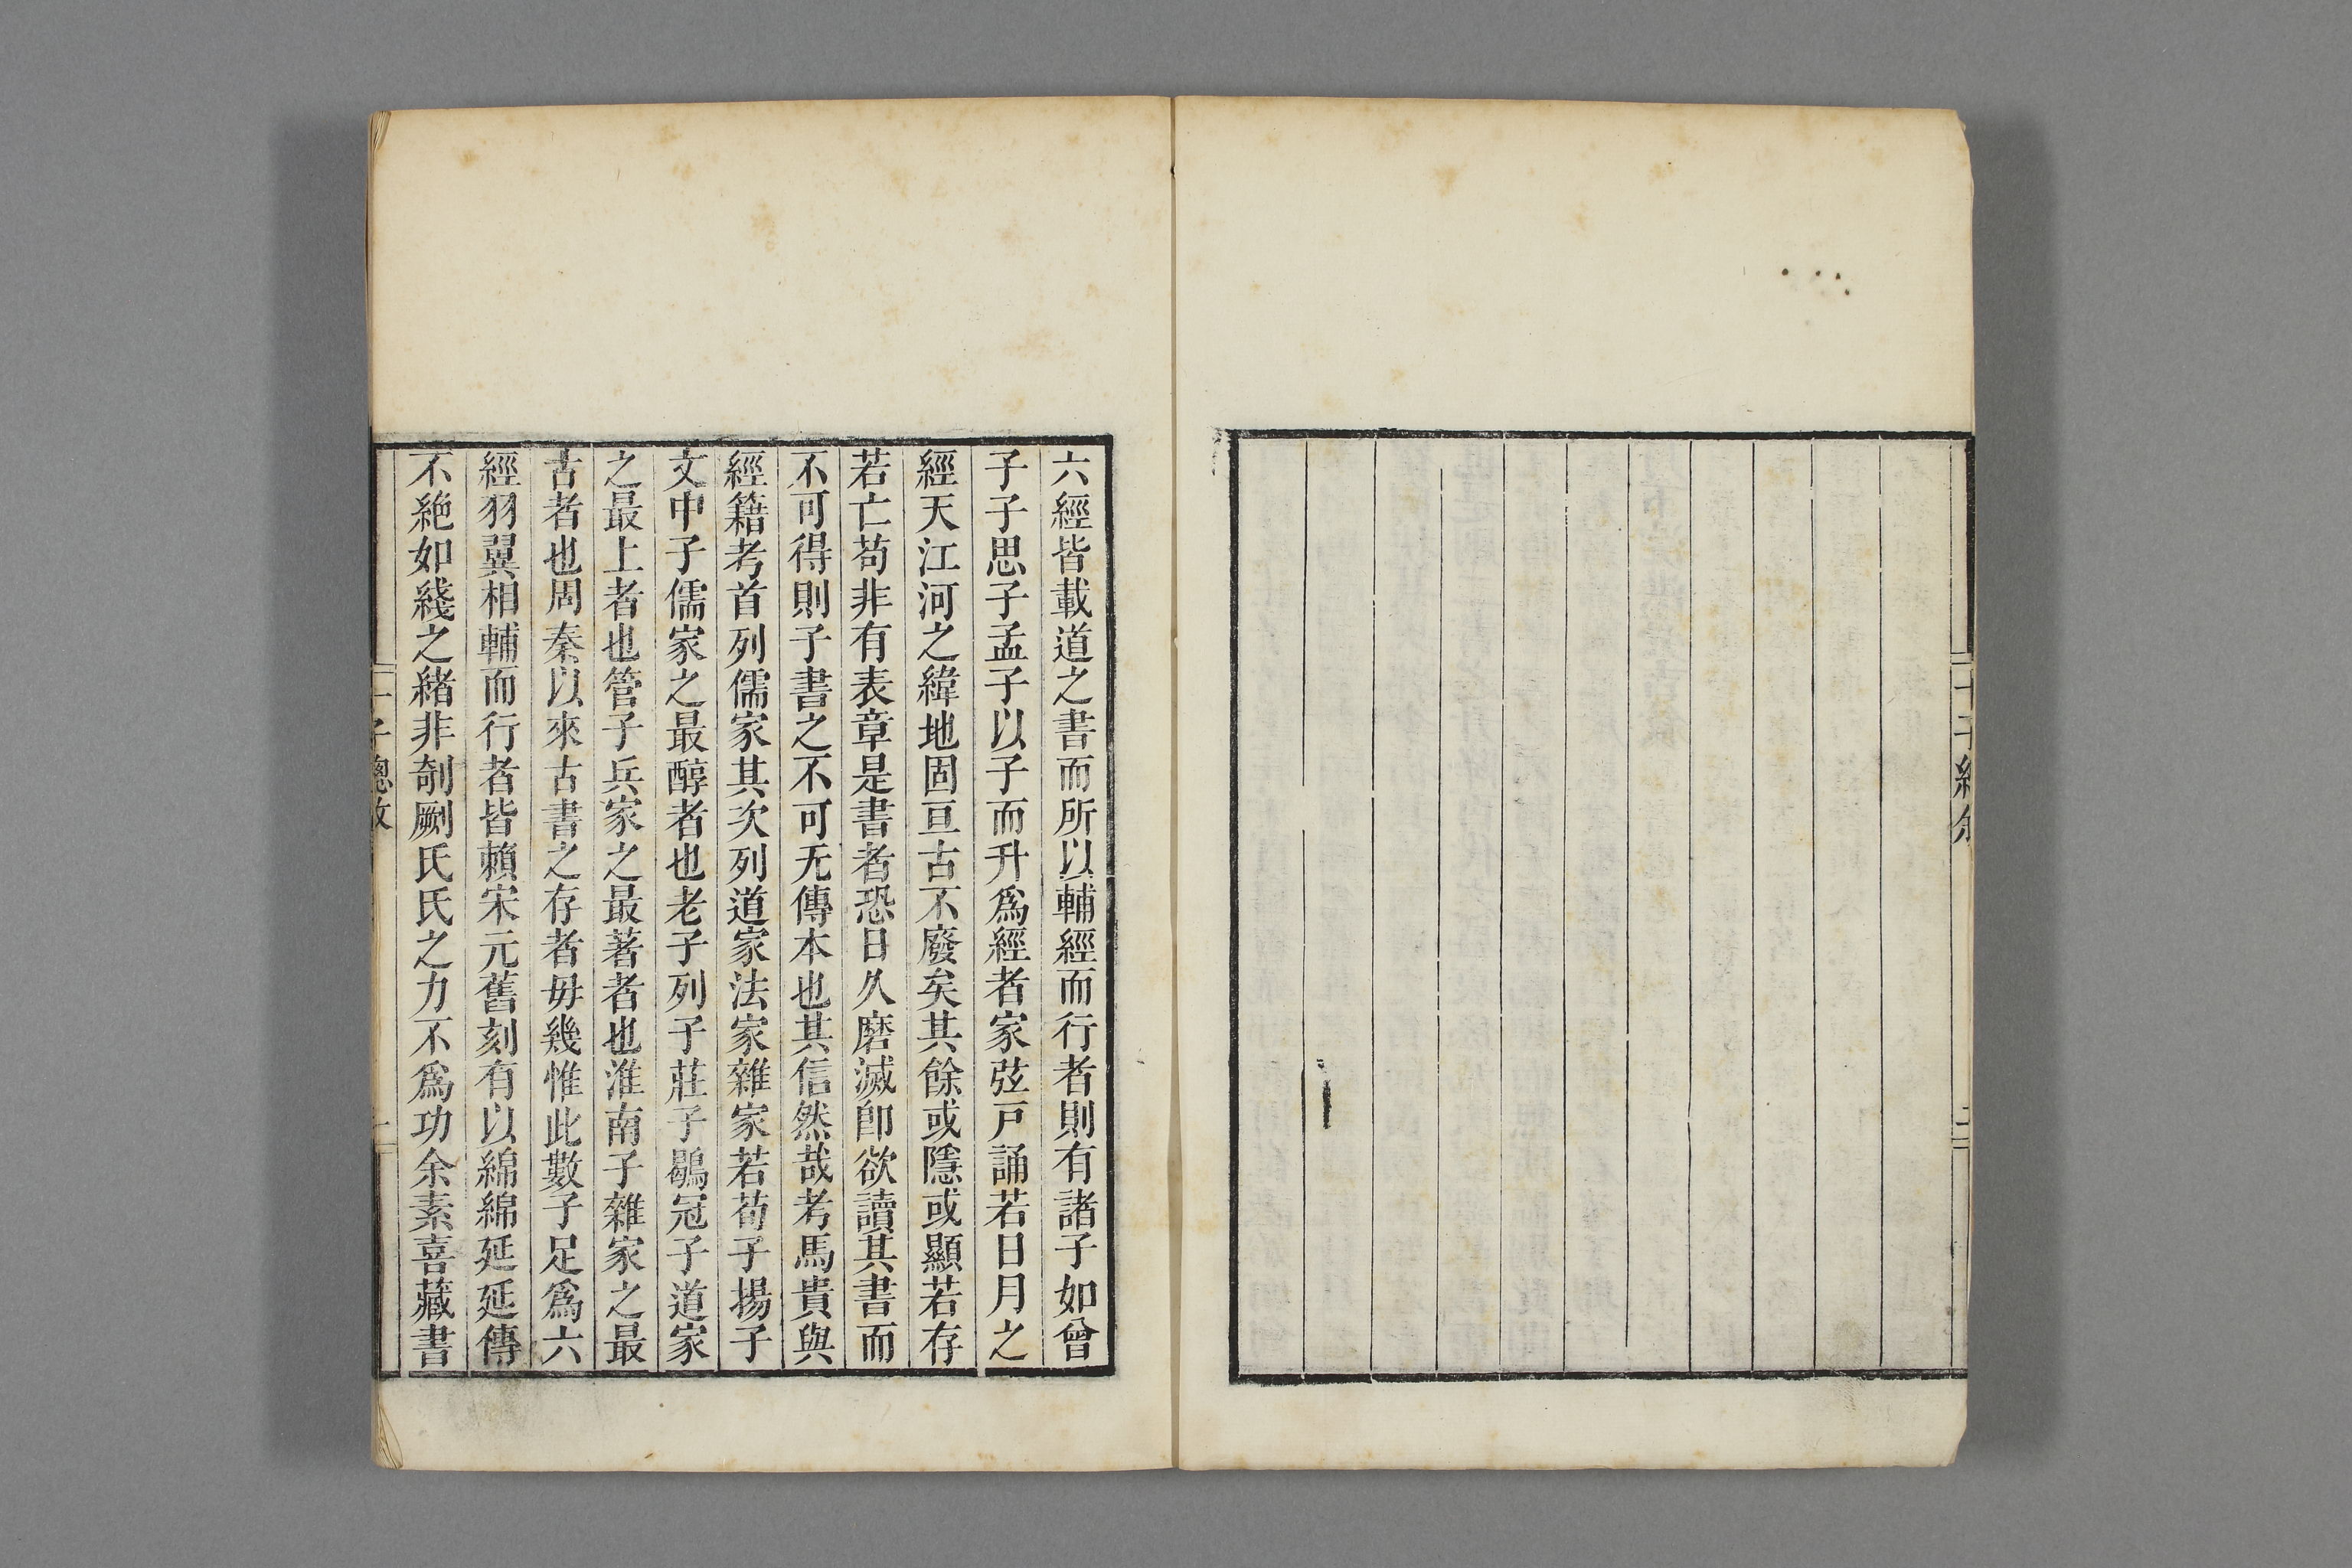 十子總敘
二
六經皆載道之書而所以輔經而行者則有諸子如曾
子子思子孟子以子而升爲經者家弦戸誦若日月之
經天江河之緯地固亘古不廢矣其餘或隱或顯若存
若亡苟非有表章是書者恐日久磨滅卽欲讀其書而
不可得則子書之不可无傳本也其信然哉考馬貴與
經籍考首列儒家其次列道家法家雜家若荀子揚子
文中子儒家之最醇者也老子列子莊子鶡冠子道家
之最上者也管子兵家之最著者也淮南子雜家之最
古者也周秦以來古書之存者毋幾惟此數子足爲六
經羽翼相輔而行者皆賴宋元舊刻有以綿綿延延傳
不絶如綫之緒非剞劂氏氏之力不爲功余素喜藏書
十子總敘